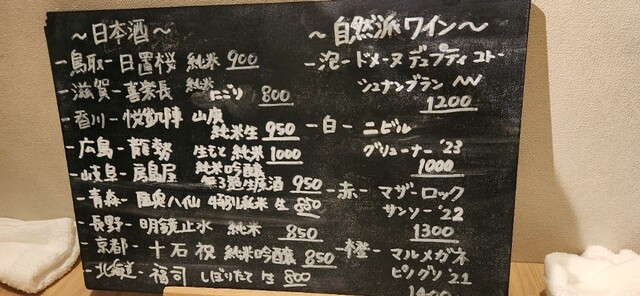 ～日本酒～
－鳥取－日置桜 純米 900
－滋賀－喜楽長 純米
にごり 800
－香川－悦凱陣 山廃
純米生 950
－広島－龍勢 生もと 純米 1000
－岐阜－房島屋 純米吟醸
生原酒 950
－青森－陸奥八仙 特別純米 生 850
－長野－明鏡止水 純米 850
－京都－十石 祝 純米吟醸 850
－北海道－福司 しぼりたて 生 800
～自然派ワイン～
－泡－ドメーヌ デュ プティ コトー
シュナンブラン NV
1200
－白－ニビル
グリューナー '23
1000
－赤－マザーロック
サンソー '22
1300
－橙－マルメガネ
ピノグリ '21